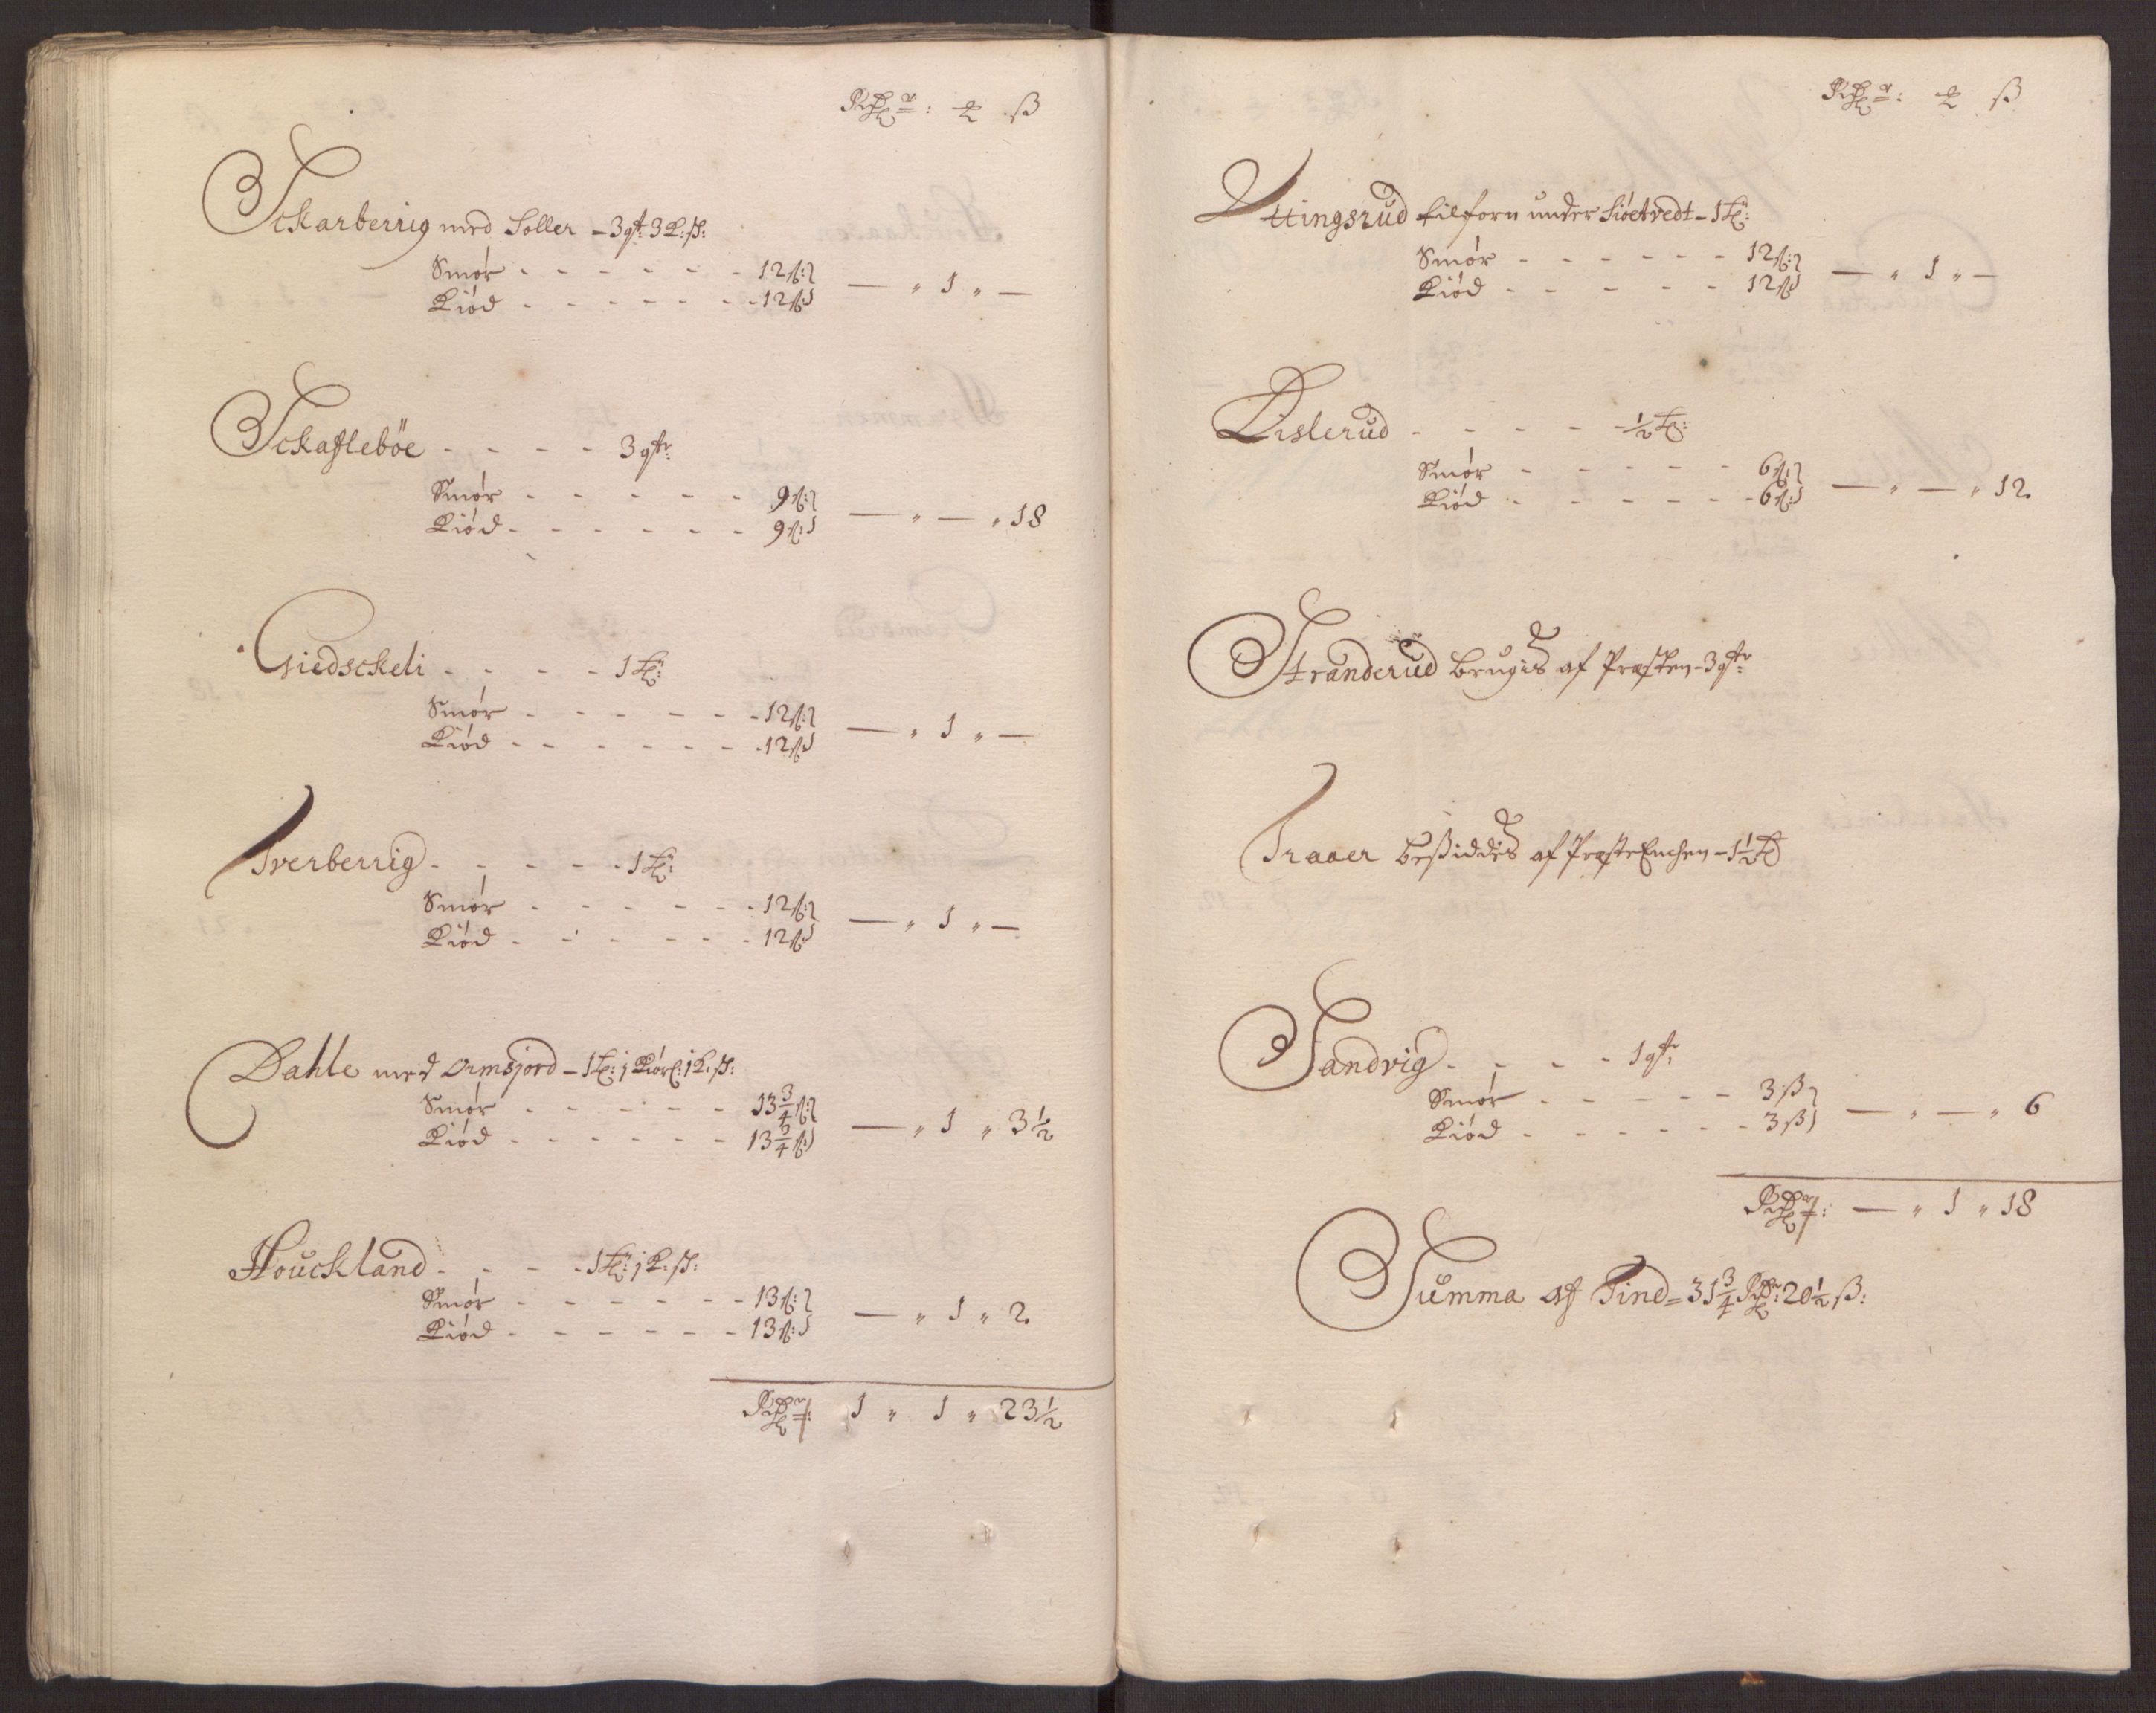 Rdr: ort ß
Scharberrig med Soller – 3 qtr 3 L: ß:
Smør - - - - - - 12 ß:
Kiød - - - - - - 12 ß — " 1 " —
Schaflebøe - - - - 3 qtr:
Smør - - - - - 9 ß:
Kiød - - - - - - 9 ß: — " — " 18
Giedscheli - - - - 1 tl:
Smør - - - - - - 12 ß:
Kiød - - - - - - 12 ß — " 1 " —
Tverberrig - - - - - 1 tl:
Smør - - - - - - 12 ß:
Kiød - - - - - - 12 ß — " 1 " —
Dahle med Ormsjord – 1 tl: j
Smør - - - - - 13 3/4 ß:
Kiød - - - - - - 13 3/4 ß — " 1 " 3 1/2
Houckland - - - - 1 tl: j
Smør - - - - - - 13 ß:
Kiød - - - - - - 13 ß: — " 1 " 2
Rdr: 1 " 1 " 23 1/2
Rdr: ort ß
Uttingsrud tilforn under Siøetvedt – 1 tl:
Smør - - - - - - 12 ß:
Kiød - - - - - 12 ß — " 1 " —
Dislerud - - - - - 1/2 tl:
Smør - - - - - 6 ß:
Kiød - - - - - - 6 ß: — " — " 12
Stranderud brugis af Præsten – 3 qtr
Traaer beßiddes af PræsteEnchen – 1 1/2 tl
Sandvig - - - - 1 qtr
Smør - - - - - 3 ß
Kiød - - - - - - 3 ß — " — " 6
Rdr: — " 1 " 18
Summa af Tind = 31 3/4 Rdr: 20 1/2 ß: